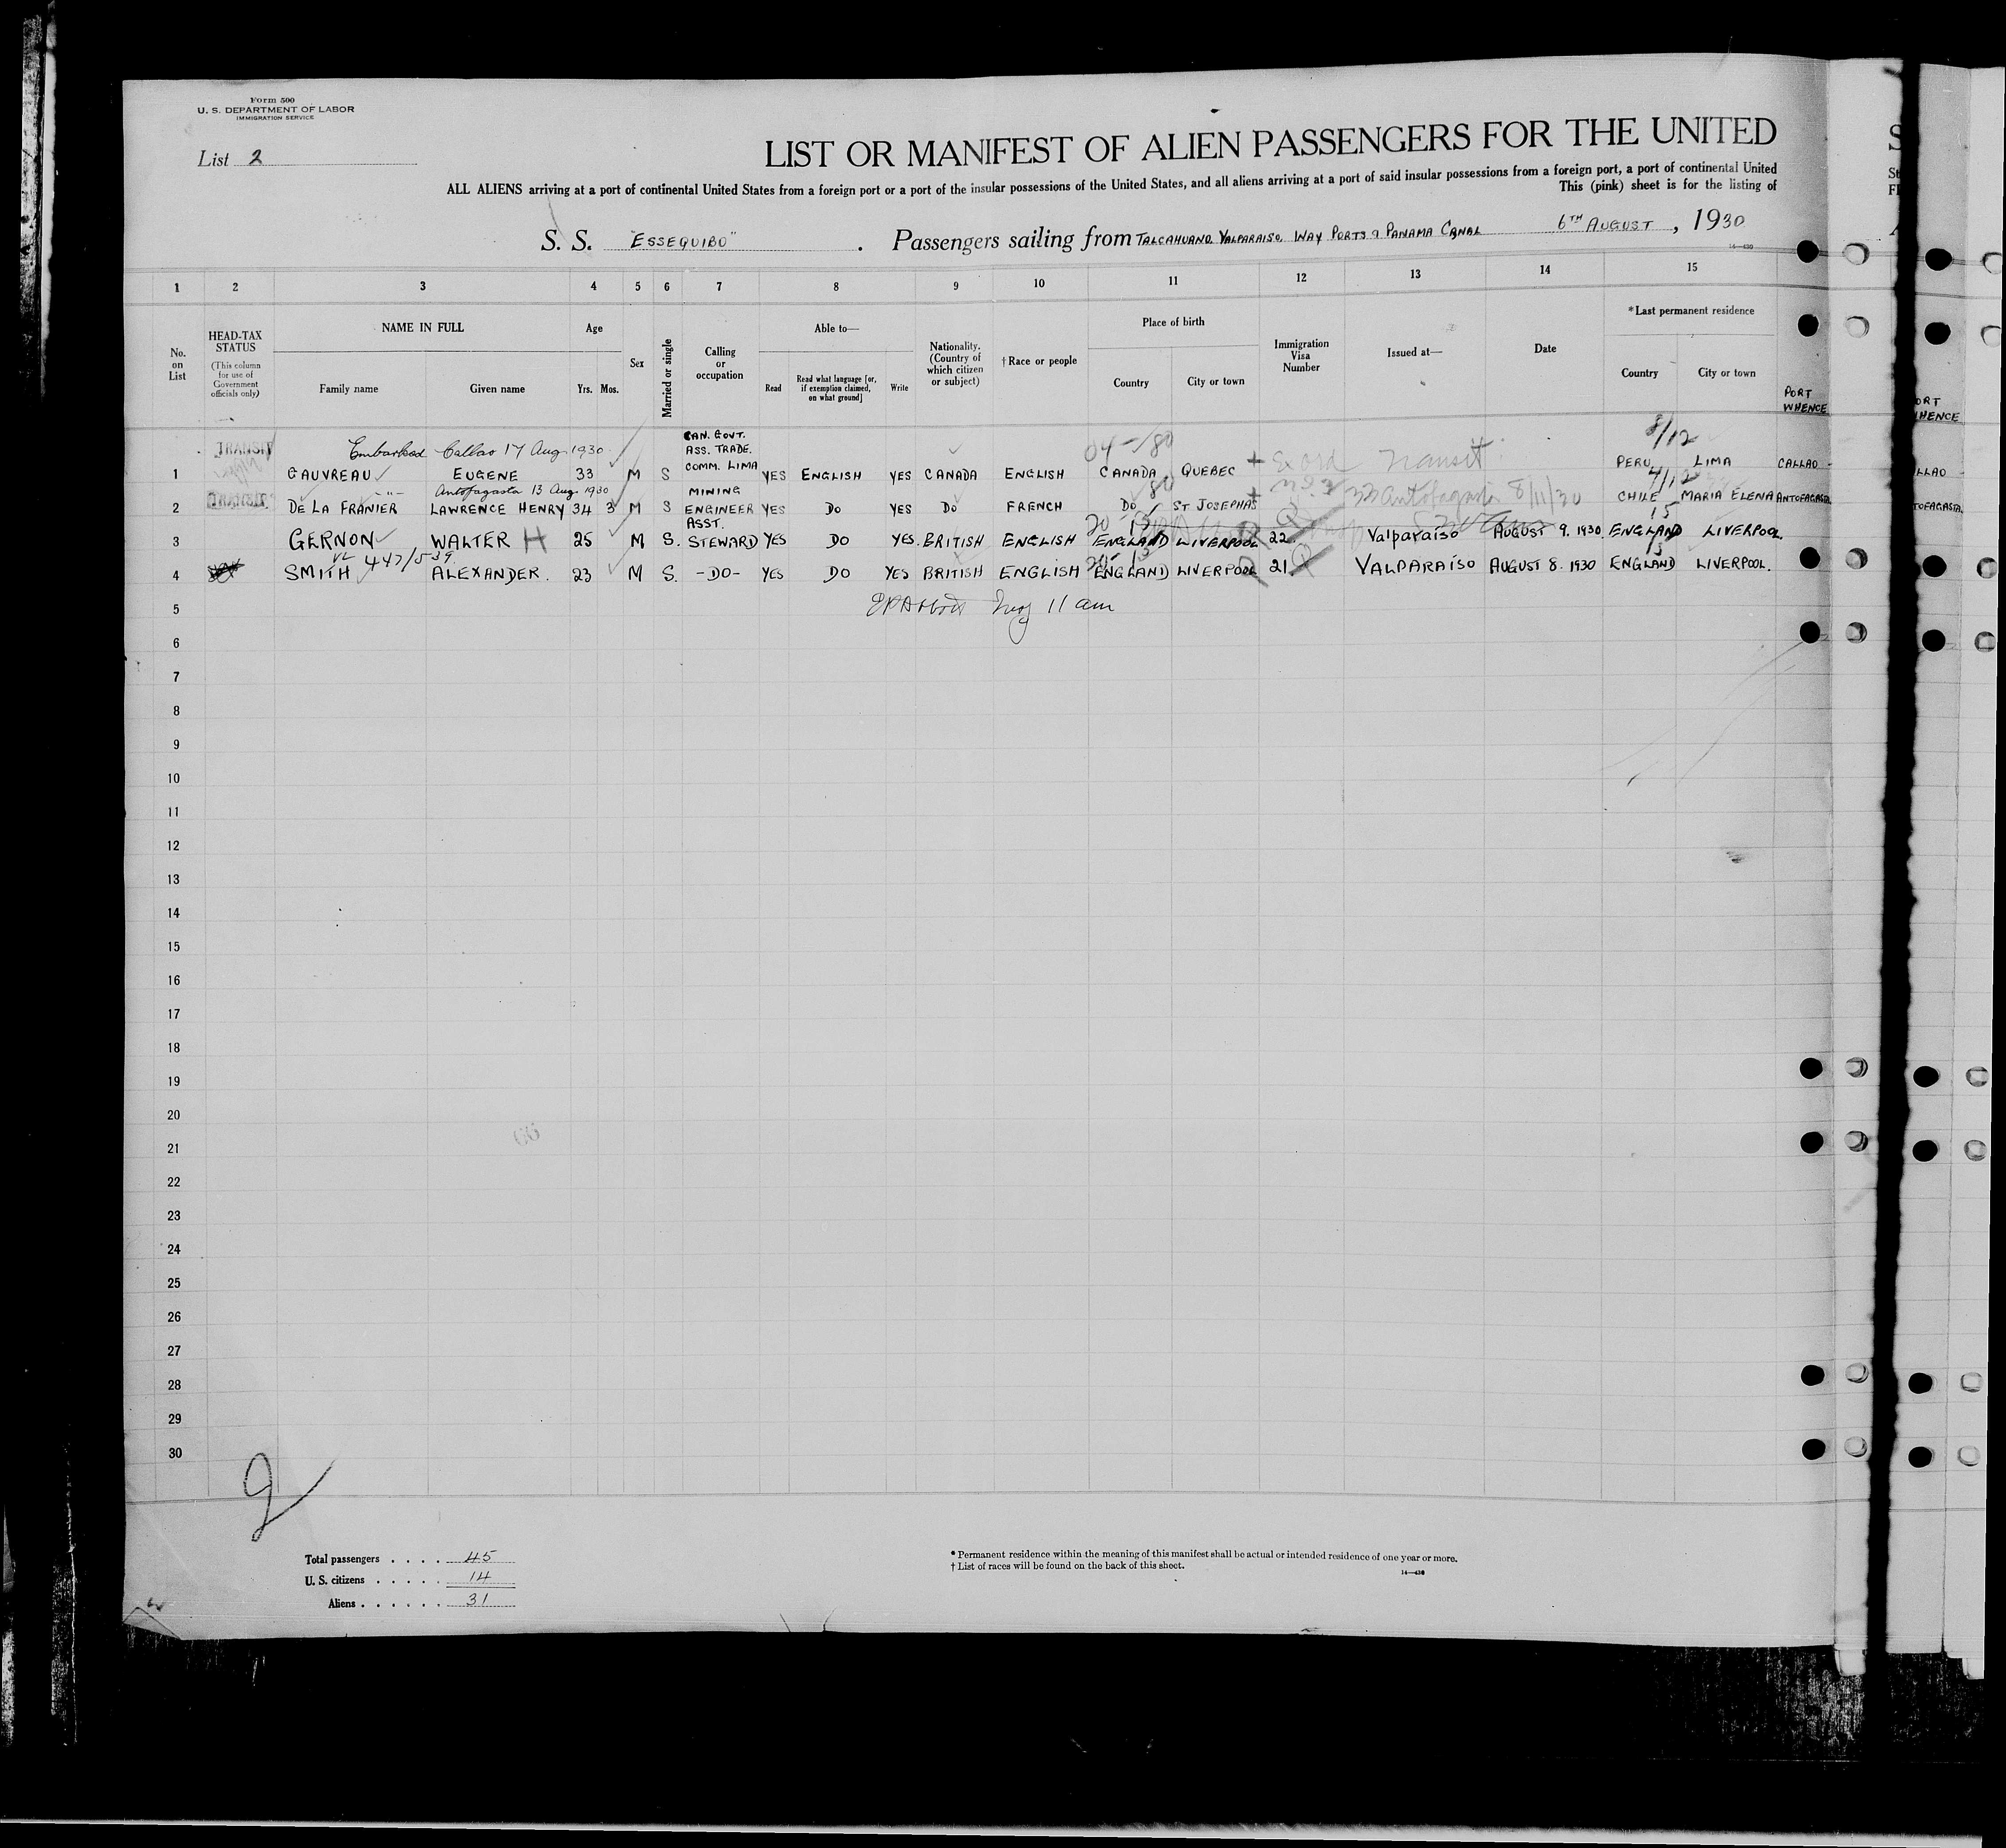 Form 500
U. S. DEPARTMENT OF LABOR
IMMIGRATION SERVICE
List 2
LIST OR MANIFEST OF ALIEN PASSENGERS FOR THE UNITED
ALL ALIENS arriving at a port of continental United States from a foreign port or a port of the insular possessions of the United States, and all aliens arriving at a port of said insular possessions from a foreign port, a port of continental United
This (pink) sheet is for the listing of
S. S. "ESSEQUIBO" . Passengers sailing from TALCAHUANO. VALPARAISO. WAY PORTS & PANAMA CANAL 6TH AUGUST, 1930
1 2 3 4 5 6 7 8 9 10 11 12 13 14 15
No. on List
HEAD-TAX STATUS
(This column for use of Government officials only)
NAME IN FULL
Family name Given name
Age
Yrs. Mos.
Sex
Married or single
Calling or occupation
Able to—
Read
Read what language [or, if exemption claimed, on what ground]
Write
Nationality. (Country of which citizen or subject)
†Race or people
Place of birth
Country City or town
Immigration Visa Number
Issued at—
Date
*Last permanent residence
Country City or town
PORT WHENCE
TRANSIT Embarked Callao 17 Aug 1930 04-/80 8/12
1 GAUVREAU EUGENE 33 M S CAN. GOVT. ASS. TRADE. COMM. LIMA YES ENGLISH YES CANADA ENGLISH CANADA QUEBEC + Transit PERU LIMA CALLAO
TRANSIT -"- Antofagasta 13 Aug 1930 80 4/12
2 DE LA FRANIER LAWRENCE HENRY 34 3 M S MINING ENGINEER YES DO YES DO FRENCH DO ST JOSEPHAS + 33 Antofagasta 8/11/30 CHILE MARIA ELENA ANTOFAGASTA
3 GERNON WALTER H 25 M S. ASST. STEWARD YES DO YES. BRITISH ENGLISH ENGLAND LIVERPOOL 22. Valparaiso AUGUST 9. 1930 ENGLAND LIVERPOOL
447/539
4 SMITH ALEXANDER. 23 M S. -DO- YES DO YES BRITISH ENGLISH ENGLAND LIVERPOOL 21 VALPARAISO AUGUST 8. 1930 ENGLAND LIVERPOOL.
5 11 am
6
7
8
9
10
11
12
13
14
15
16
17
18
19
20
21
22
23
24
25
26
27
28
29
30
2
Total passengers . . . . 45
U. S. citizens . . . . . 14
Aliens . . . . . . 31
* Permanent residence within the meaning of this manifest shall be actual or intended residence of one year or more.
† List of races will be found on the back of this sheet.